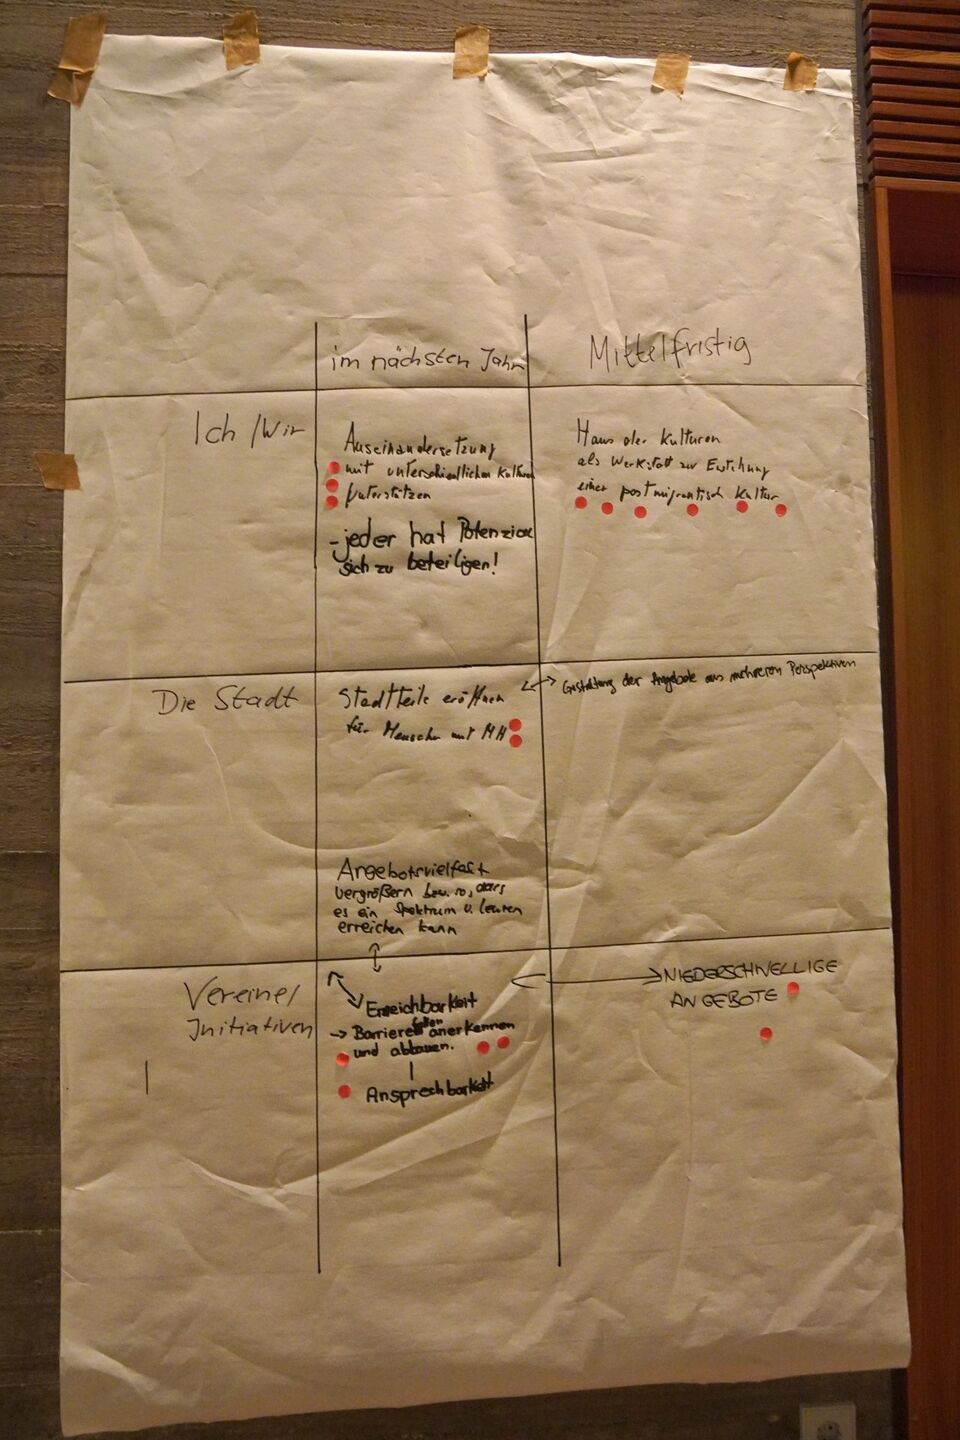 im nächsten Jahr
Mittelfristig
Ich / Wir
Auseinandersetzung
mit unterschiedlichen Kulturen
unterstützen
- jeder hat Potenzial
sich zu beteiligen!
Haus der Kulturen
als Werkstatt zur Entstehung
einer postmigrantisch Kultur
Die Stadt
Stadtteile eröffnen
für Menschen mit MH
Gestaltung der Angebote aus mehreren Perspektiven
Angebotsvielfalt
vergrößern bzw. so, dass
es ein Spektrum v. Leuten
erreichen kann
Vereine/
Initiativen
Erreichbarkeit
→ Barrieren anerkennen
und abbauen.
Ansprechbarkeit
NIEDERSCHWELLIGE
ANGEBOTE